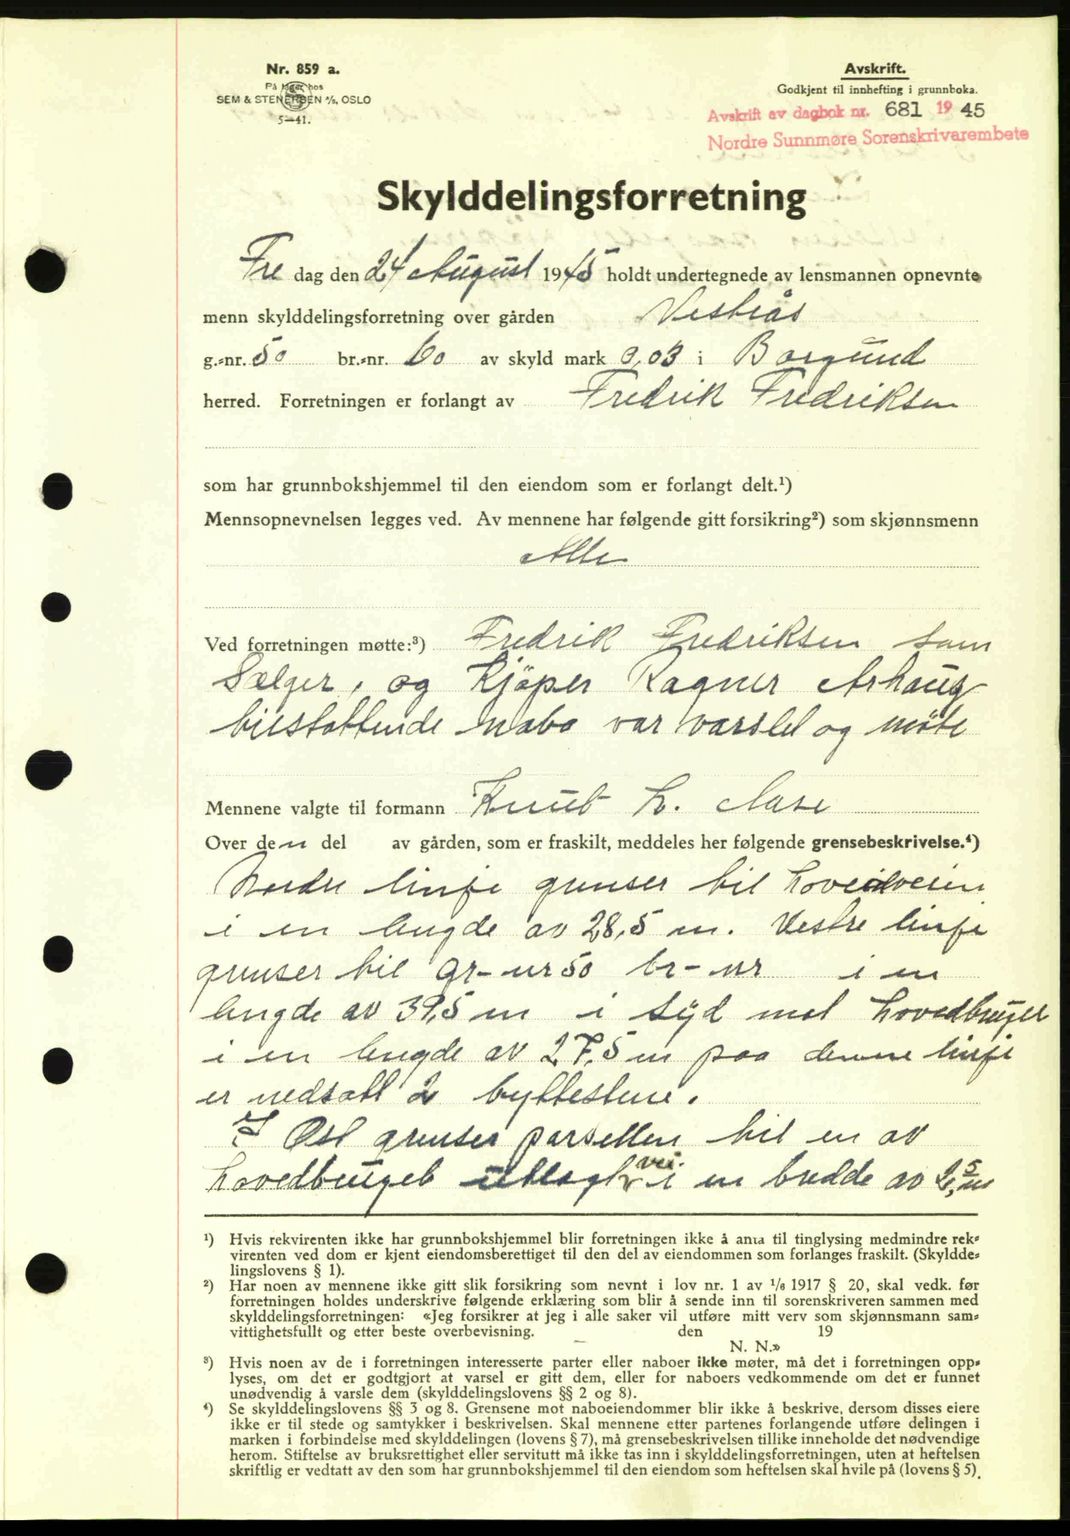 Nr. 859 a.
På lager hos
SEM & STENERSEN A/S, OSLO
5—41.
Avskrift.
Godkjent til innhefting i grunnboka.
Avskrift av dagbok nr. 681 1945
Nordre Sunnmøre Sorenskrivarembete
Skylddelingsforretning
Fre dag den 24/ August 1945 holdt undertegnede av lensmannen opnevnte
menn skylddelingsforretning over gården Vestrås
g.-nr. 50 br.-nr. 60 av skyld mark 0,03 i Borgund
herred. Forretningen er forlangt av Fredrik Fredriksen
som har grunnbokshjemmel til den eiendom som er forlangt delt.¹)
Mennsopnevnelsen legges ved. Av mennene har følgende gitt forsikring²) som skjønnsmenn
Alle
Ved forretningen møtte:³) Fredrik Fredriksen som
Sælger, og Kjöper Ragner Arhaug
tilstøttende nabo var varslet og møte
Mennene valgte til formann Knut L. Aase
Over den del av gården, som er fraskilt, meddeles her følgende grensebeskrivelse.⁴)
Nordre linje grenser til hovedveien
i en lengde av 28,5 m. Vestre linje
grenser til gr-nr 50 br-nr i en
lengde av 39,5 m i Syd mot hovedbruget
i en lengde av 27,5 m paa denne linje
er nedsatt 2 byttestene.
I Øst grenser parsellen til en av
hovedbruget utlagt vei i en bredde av 2,5 m
¹) Hvis rekvirenten ikke har grunnbokshjemmel blir forretningen ikke å anta til tinglysing medmindre rek-
virenten ved dom er kjent eiendomsberettiget til den del av eiendommen som forlanges fraskilt. (Skyldde-
lingslovens § 1).
²) Har noen av mennene ikke gitt slik forsikring som nevnt i lov nr. 1 av 1/6 1917 § 20, skal vedk. før
forretningen holdes underskrive følgende erklæring som blir å sende inn til sorenskriveren sammen med
skylddelingsforretningen: «Jeg forsikrer at jeg i alle saker vil utføre mitt verv som skjønnsmann sam-
vittighetsfullt og etter beste overbevisning. den 19
N. N.»
³) Hvis noen av de i forretningen interesserte parter eller naboer ikke møter, må det i forretningen opp-
lyses, om det er godtgjort at varsel er gitt dem, eller for naboers vedkommende om det er funnet
unødvendig å varsle dem (skylddelingslovens §§ 2 og 8).
⁴) Se skylddelingslovens §§ 3 og 8. Grensene mot naboeiendommer blir ikke å beskrive, dersom disses eiere
ikke er til stede og samtykker i beskrivelsen. Skal mennene etter partenes forlangende utføre delingen i
marken i forbindelse med skylddelingen (lovens § 7), må grensebeskrivelsen tillike inneholde det nødvendige
herom. Stiftelse av bruksrettighet eller servitutt må ikke tas inn i skylddelingsforretningen, uten at heftelsen
skriftlig er vedtatt av den som har grunnbokshjemmel til den eiendom som heftelsen skal hvile på (lovens § 5).